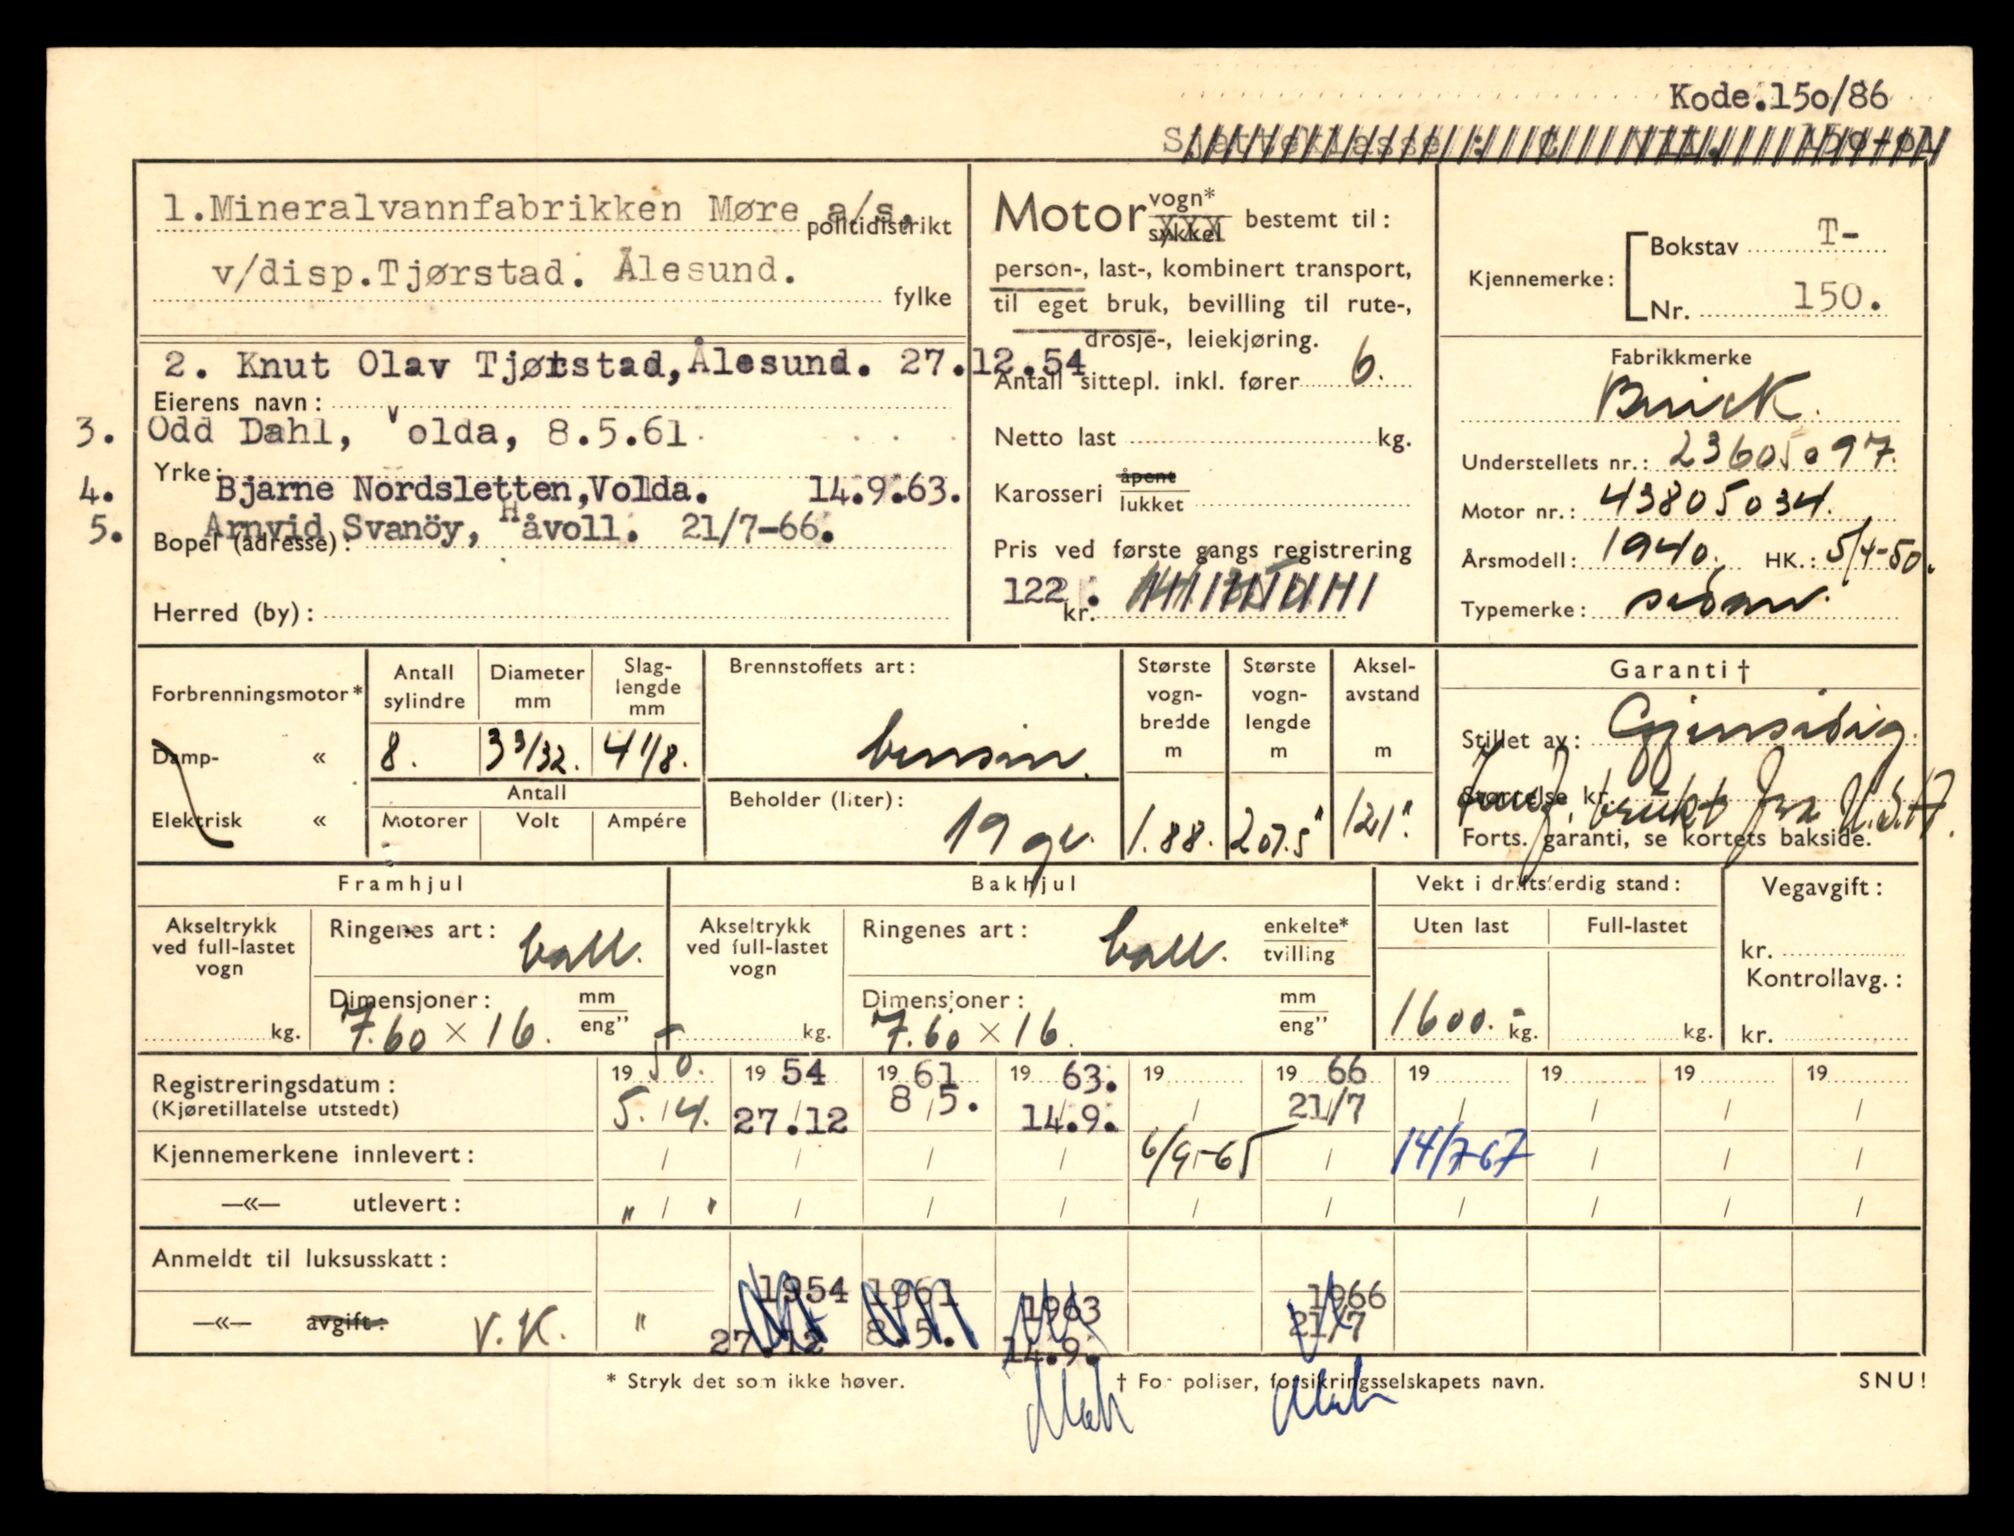 Kode.150/86
1.Mineralvannfabrikken Møre a/s,
politidistrikt
v/disp.Tjørstad. Ålesund.
fylke
2. Knut Olav Tjørstad, Ålesund. 27.12.54
Eierens navn:
3. Odd Dahl, Volda, 8.5.61
Yrke:
4. Bjarne Nordsletten,Volda. 14.9.63.
5. Arnvid Svanöy, Håvoll. 21/7-66.
Bopel (adresse):
Herred (by):
Motor vogn*
sykkel bestemt til:
person-, last-, kombinert transport,
til eget bruk, bevilling til rute-,
drosje-, leiekjøring.
Antall sittepl. inkl. fører 6.
Netto last kg.
Karosseri åpent
lukket
Pris ved første gangs registrering
122.
kr.
Kjennemerke:
Bokstav T-
Nr. 150.
Fabrikkmerke
Buick.
Understellets nr.: 23605097.
Motor nr.: 43805034.
Årsmodell: 1940. HK.: 5/4-50.
Typemerke: sedan.
Forbrenningsmotor*
Damp- «
Elektrisk «
Antall sylindre
8.
Diameter mm
3 3/32.
Slag-
lengde
mm
4 1/8.
Antall
Motorer Volt Ampére
Brennstoffets art:
bensin.
Beholder (liter):
19 gl.
Største
vogn-
bredde
m
1.88.
Største
vogn-
lengde
m
207.5"
Aksel-
avstand
m
121".
Garanti †
Stillet av: Gjensidig.
Størrelse kr.
brukt fra U.S.A.
Forts. garanti, se kortets bakside.
Framhjul
Akseltrykk
ved full-lastet
vogn
kg.
Ringenes art: ball.
Dimensjoner: mm
eng"
7.60 × 16.
Bakhjul
Akseltrykk
ved full-lastet
vogn
kg.
Ringenes art: ball. enkelte*
tvilling
Dimensjoner: mm
eng"
7.60 × 16.
Vekt i driftsferdig stand:
Uten last Full-lastet
1600.- kg. kg.
Vegavgift:
kr.
Kontrollavg.:
kr.
Registreringsdatum: 19 50. 19 54 19 61 19 63. 19 19 66 19 19 19 19
(Kjøretillatelse utstedt) 5./4. 27.12 8/5. 14.9. / 21/7 / / / /
Kjennemerkene innlevert: / / / / 6/9-65 / 14/7-67 / / /
—«— utlevert: " / " / / / / / / / / /
Anmeldt til luksusskatt:
1954 1961 1963 1966
—«— avgift: V.K. " 27.12 8.5. 14.9. 21/7
* Stryk det som ikke høver. † For poliser, forsikringsselskapets navn. SNU!